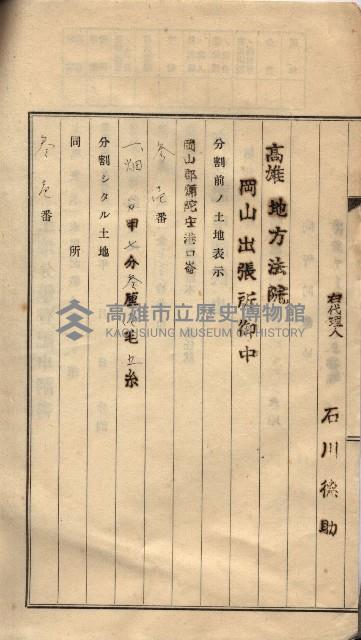 右代理人
石川 德助
高雄地方法院
岡山出張所御中
分割前ノ土地表示
岡山郡彌陀庄港口崙
参壱番
一畑 甲七分参厘 毛五糸
分割シタル土地
同所
参壱番
高雄市立歷史博物館
KAOHSIUNG MUSEUM OF HISTORY